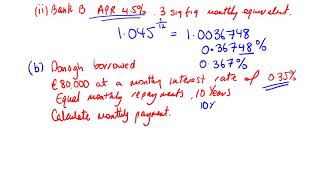 (ii) Bank B APR 4.5%. 3 sig fig monthly equivalent.
1.045^(1/12) = 1.0036748
0.36748%
0.367%
(b) Donogh borrowed
€80,000 at a monthly interest rate of 0.35%
Equal monthly repayments. 10 Years
Calculate monthly payment. 10x